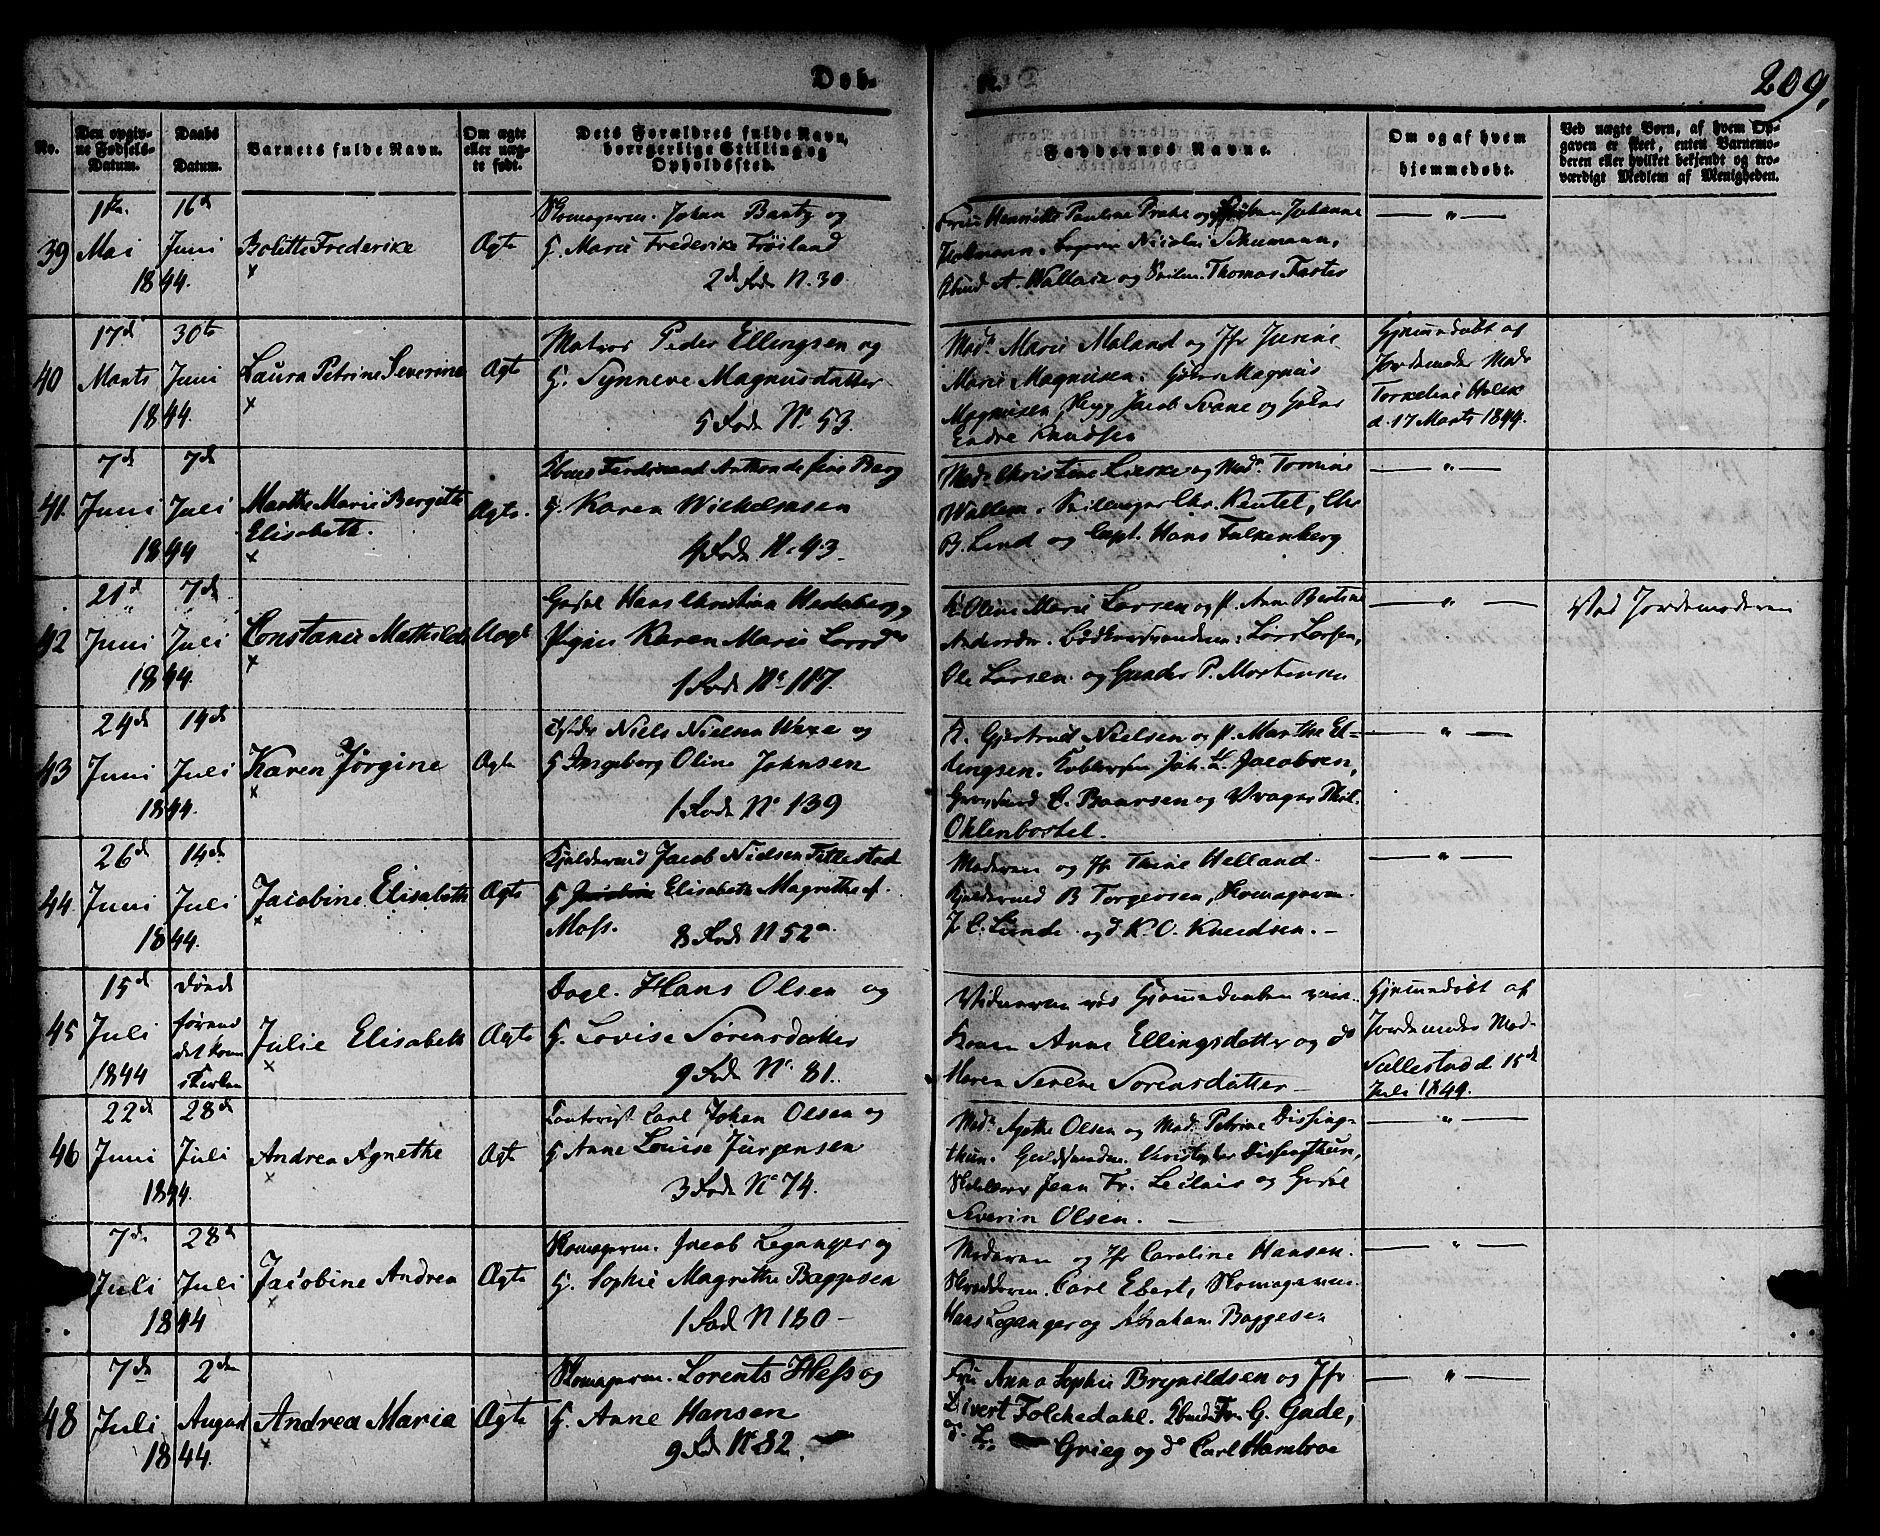 Døb-
te.
209,
No.
Den opgiv-
ne Fødsels-
Datum.
Daabs
Datum.
Barnets fulde Navn.
Om ægte
eller uæg-
te født.
Dets Forældres fulde Navn,
borgerlige Stilling og
Opholdssted.
Faddernes Navne.
Om og af hvem
hjemmedøbt.
Ved uægte Born, af hvem Op-
gaven er skeet, enten Barnemo-
deren eller hvilket bekjendt og tro-
værdigt Medlem af Menigheden.
39
Mai
1844.
16d
Juni
Bolette Frederike
Ægte
Skomagerm. Johan Bantz og
H. Marie Frederike Frøiland
2d Fode N. 30.
Frue Henriette Pauline Prahe og Johanne
Holtmann. Nicolai Schumann,
A. Wallace og Thomas Faster
— " —
40
17d
Marts
1844.
30te
Juni
Laura Petrine Severine
Ægte
Matros Peder Ellingsen og
H. Synneve Magnusdatter
5 Fode No. 53.
Mad. Marie Maland og Jfr
Marie Magnusen. Magnus
Magnusen, Jacob Svane og
Endre Knudsen
Hjemmedøbt af
Jordemoder Mad.
Torkeline Holck
d. 17 Marts 1844.
41
7d
Juni
1844
7d
Juli
Marthe Marie Bergitte
Elisabeth.
Ægte.
Ferdinand Berg
H. Karen Wilhelmsen
4 Fode N. 43.
Mad. Christine og Mad. Tomine
Wallem. Chr.
B. Lind og Capt. Hans Falkenberg
— " —
42
21d
Juni
1844.
7d
Juli
Constance Mathilde
Uægte
Hans Christian Hertzberg og
Pigen Karen Marie Larsdr
1 Fode No. 117.
K. Oline Marie Larsen og P. Anne Bertine
Lars Larsen,
Ole Larsen og Gunder P. Mortensen
— " —
Ved Jordemoderen
43
24d
Juni
1844.
14d
Juli
Karen Jørgine
Ægte
Niels Nielsen Waxe og
H. Ingeborg Oline Johnsen
1 Fode No 139
K. Gjertrud Nielsen og P. Marthe El-
lingsen. Joh. L. Jacobsen,
C. Baarsen og Vrager Phil.
Ohlenbostel.
— " —
44
26d
Juni
1844.
14d
Juli
Jacobine Elisabeth
Ægte
Kjeldersvend Jacob Nielsen Tellestad
H. Elisabeth Magrethe f.
Moss. 8 Fode N 52a.
Moderen og Jfr Thine Helland
Kjeldersvend B Torgersen, Skomagerm.
J. C. Lunde og d K. O. Knudsen. —
— " —
45
15d
Juli
1844
Døde
førend
det kom
i Kirken
Julie Elisabeth
Ægte
Dagl. Hans Olsen og
H. Lovise Sørensdatter
9 Fode No. 81.
Vidnerne ved Hjemmedaaben vare
Konen Anne Ellingsdatter og do
Maren Serene Sorensdatter —
Hjemmedøbt af
Jordemoder Mad.
Sællestad d 15de
Juli 1844.
46
22d
Juni
1844
28d
Juli
Andrea Agnethe
Ægte
Contorist Carl Johan Olsen og
H Anne Louise Jürgensen
3 Fode No 74.
Mad. Agethe Olsen og Mad. Petrine Dissing-
thun. Guldsmedm. Christopher Dissingthun,
Jean Fr. Leclair og
Severin Olsen. —
— " —
7d
Juli
1844
28d
Juli
Jacobine Andrea
Ægte
Skomagerm. Jacob Leganger og
H. Sophie Magrethe Baggesen
1 Fode N 180 —
Moderen og Jfr Caroline Hansen.
Skrædderm. Carl Ebert, Skomagerm.
Hans Leganger og Abraham Baggesen
— " —
48
7d
Juli
1844.
2den
August
Andrea Maria
Ægte
Skomagerm. Lorents Hess og
H. Anne Hansen
9 Fode No 82.
Fru Anna Sophie Brynildsen og Jfr
Divert Folchedahl. Fr. G. Gade,
Grieg og do Carl Hambroe
— " —